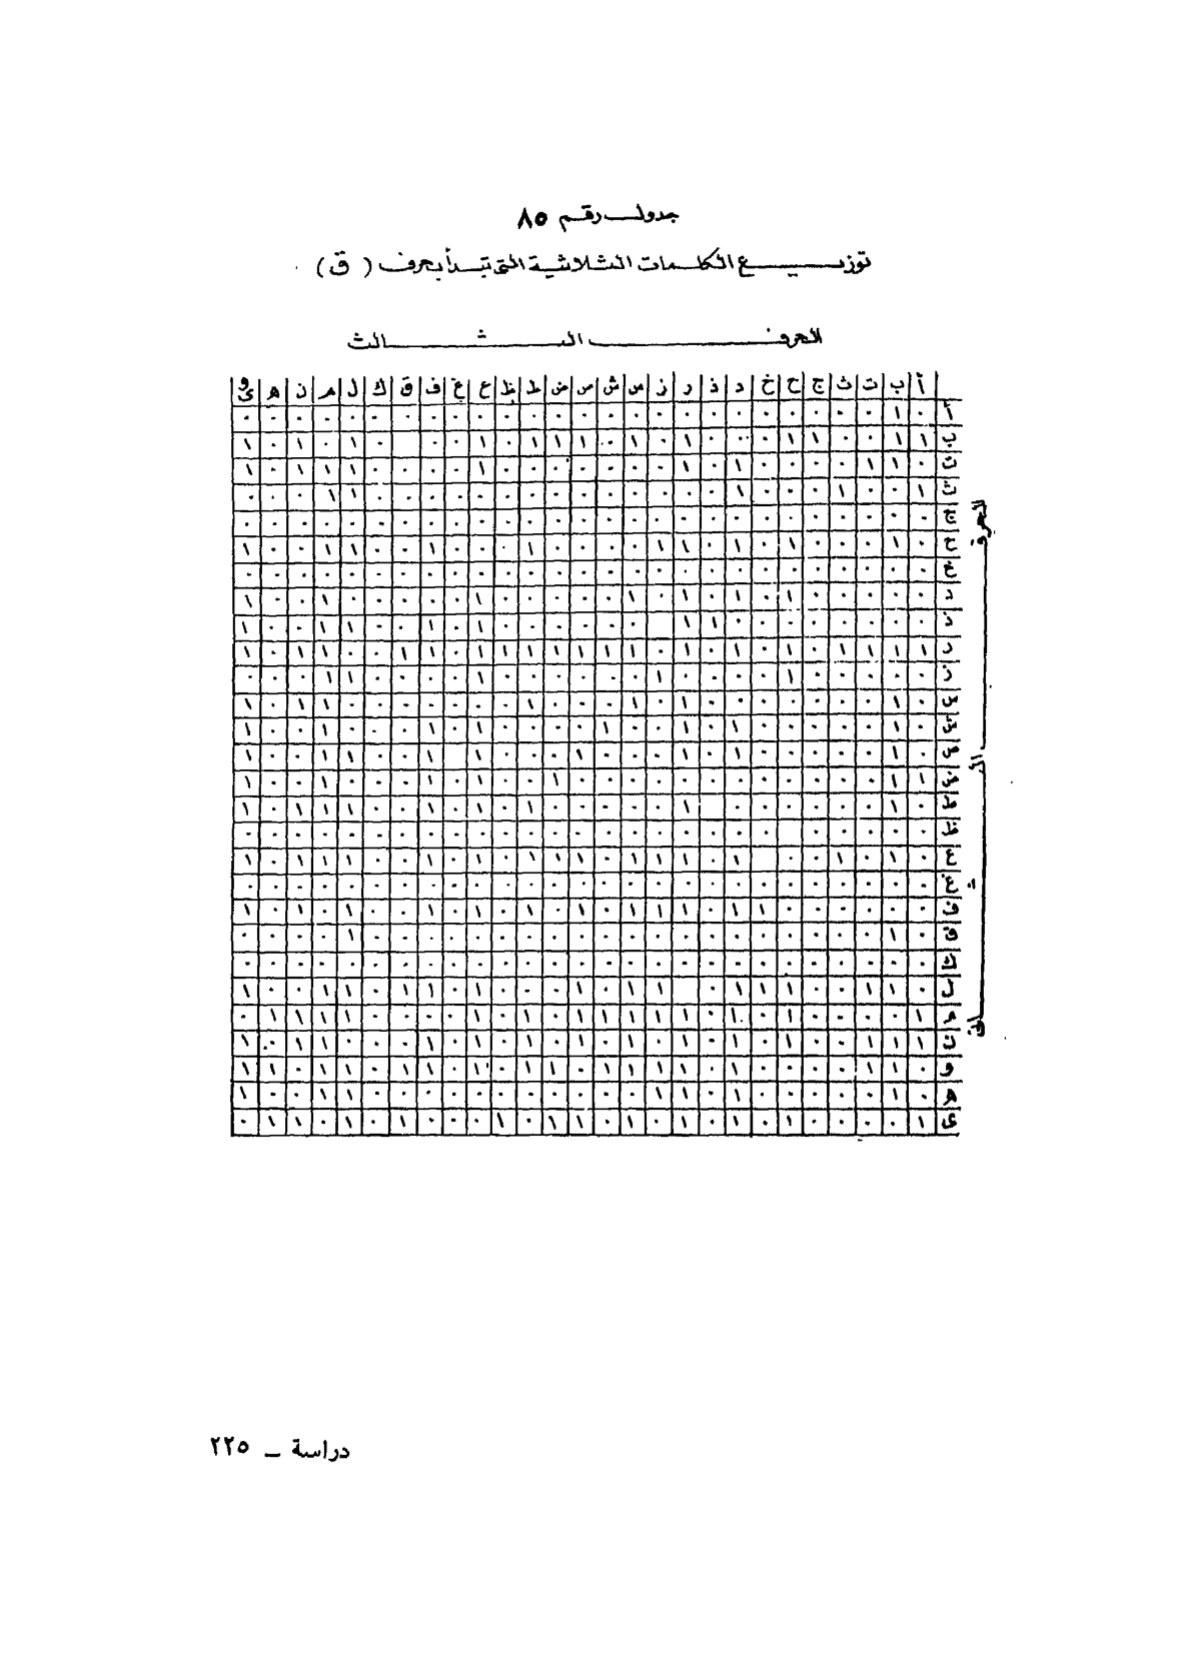 جدول رقم ٨٥
توزيع الكلمات الثلاثية التى تبدأ بحرف ( ق )
الحرف الثالث
أ ب ت ث ج ح خ د ذ ر ز س ش ص ض ط ظ ع غ ف ق ك ل م ن ه و ى
أ ٠ ١ ٠ ٠ ٠ ٠ ٠ ٠ ٠ ٠ ٠ ٠ ٠ ٠ ٠ ٠ ٠ ٠ ٠ ٠ ٠ ٠ ٠ ٠ ٠ ٠ ٠
ب ١ ١ ٠ ٠ ١ ١ ٠ ٠ ٠ ١ ٠ ١ ٠ ١ ١ ١ ٠ ١ ٠ ٠ ٠ ١ ٠ ١ ٠ ١
ت ٠ ١ ١ ٠ ٠ ٠ ٠ ١ ٠ ١ ٠ ٠ ٠ ٠ ٠ ٠ ٠ ١ ٠ ٠ ٠ ٠ ١ ١ ١ ٠ ١
ث ١ ٠ ٠ ١ ٠ ٠ ٠ ١ ٠ ٠ ٠ ٠ ٠ ٠ ٠ ٠ ٠ ٠ ٠ ٠ ٠ ٠ ١ ١ ٠ ٠ ٠
ج ٠ ٠ ٠ ٠ ٠ ٠ ٠ ٠ ٠ ٠ ٠ ٠ ٠ ٠ ٠ ٠ ٠ ٠ ٠ ٠ ٠ ٠ ٠ ٠ ٠ ٠ ٠
ح ٠ ١ ٠ ٠ ٠ ١ ٠ ١ ٠ ١ ١ ٠ ٠ ٠ ٠ ١ ٠ ٠ ٠ ١ ٠ ٠ ١ ١ ٠ ٠ ١
خ ٠ ٠ ٠ ٠ ٠ ٠ ٠ ٠ ٠ ٠ ٠ ٠ ٠ ٠ ٠ ٠ ٠ ٠ ٠ ٠ ٠ ٠ ٠ ٠ ٠ ٠ ٠
د ٠ ٠ ٠ ٠ ٠ ١ ٠ ١ ٠ ١ ٠ ١ ٠ ٠ ٠ ٠ ٠ ١ ٠ ٠ ٠ ٠ ٠ ١ ٠ ٠ ١
ذ ٠ ٠ ٠ ٠ ٠ ٠ ٠ ٠ ١ ١ ٠ ٠ ٠ ٠ ٠ ٠ ١ ٠ ١ ٠ ٠ ١ ١ ٠ ٠ ١
ر ١ ١ ١ ١ ٠ ١ ٠ ١ ٠ ١ ٠ ١ ١ ١ ١ ١ ١ ١ ١ ١ ١ ٠ ٠ ١ ١ ٠ ١
ز ٠ ٠ ٠ ٠ ٠ ١ ٠ ٠ ٠ ٠ ١ ٠ ٠ ٠ ٠ ٠ ٠ ١ ٠ ٠ ٠ ٠ ١ ١ ٠ ٠ ٠
س ٠ ١ ٠ ٠ ٠ ٠ ٠ ٠ ٠ ١ ٠ ١ ٠ ٠ ٠ ١ ٠ ٠ ٠ ٠ ٠ ٠ ٠ ١ ١ ٠ ١
ش ٠ ١ ٠ ٠ ٠ ٠ ٠ ١ ٠ ١ ٠ ٠ ١ ٠ ٠ ٠ ٠ ١ ٠ ١ ٠ ٠ ٠ ١ ٠ ٠ ١
ص ٠ ١ ٠ ٠ ٠ ٠ ٠ ١ ٠ ١ ٠ ٠ ٠ ١ ٠ ٠ ٠ ١ ٠ ١ ٠ ٠ ١ ١ ٠ ٠ ١
ض ١ ١ ٠ ٠ ٠ ٠ ٠ ٠ ٠ ٠ ٠ ٠ ٠ ٠ ١ ٠ ٠ ١ ٠ ١ ٠ ٠ ٠ ١ ٠ ٠ ١
ط ٠ ١ ٠ ٠ ٠ ٠ ٠ ٠ ٠ ١ ٠ ٠ ٠ ٠ ٠ ١ ٠ ١ ٠ ١ ٠ ٠ ١ ١ ١ ٠ ١
ظ ٠ ٠ ٠ ٠ ٠ ٠ ٠ ٠ ٠ ٠ ٠ ٠ ٠ ٠ ٠ ٠ ٠ ٠ ٠ ٠ ٠ ٠ ٠ ٠ ٠ ٠
ع ٠ ١ ٠ ١ ٠ ٠ ١ ٠ ١ ١ ١ ٠ ١ ١ ١ ٠ ١ ٠ ١ ٠ ٠ ١ ١ ١ ٠ ١
غ ٠ ٠ ٠ ٠ ٠ ٠ ٠ ٠ ٠ ٠ ٠ ٠ ٠ ٠ ٠ ٠ ٠ ٠ ٠ ٠ ٠ ٠ ٠ ٠ ٠ ٠ ٠
ف ٠ ٠ ٠ ٠ ٠ ٠ ١ ١ ٠ ١ ١ ١ ٠ ١ ٠ ١ ٠ ١ ٠ ١ ٠ ٠ ١ ٠ ١ ٠ ١
ق ٠ ١ ٠ ٠ ٠ ٠ ٠ ٠ ٠ ٠ ٠ ٠ ٠ ٠ ٠ ٠ ٠ ٠ ٠ ٠ ٠ ٠ ١ ٠ ٠ ٠ ٠
ك ٠ ٠ ٠ ٠ ٠ ٠ ٠ ٠ ٠ ٠ ٠ ٠ ٠ ٠ ٠ ٠ ٠ ٠ ٠ ٠ ٠ ٠ ٠ ٠ ٠ ٠ ٠
ل ٠ ١ ١ ٠ ٠ ١ ١ ١ ٠ ١ ١ ٠ ١ ٠ ٠ ٠ ١ ٠ ١ ١ ٠ ١ ١ ٠ ٠ ١
م ١ ٠ ٠ ٠ ٠ ١ ٠ ١ ٠ ١ ١ ١ ١ ١ ٠ ١ ٠ ١ ٠ ٠ ٠ ٠ ١ ١ ١ ١ ٠
ن ١ ١ ١ ٠ ٠ ١ ٠ ١ ٠ ١ ٠ ١ ٠ ١ ٠ ١ ٠ ١ ٠ ١ ٠ ٠ ٠ ١ ١ ٠ ١
و ٠ ١ ١ ٠ ٠ ٠ ٠ ١ ٠ ١ ١ ١ ١ ٠ ١ ١ ٠ ١ ٠ ١ ١ ٠ ١ ١ ٠ ١ ١
ه ٠ ١ ٠ ٠ ٠ ٠ ٠ ١ ٠ ١ ١ ٠ ٠ ٠ ٠ ٠ ٠ ٠ ٠ ٠ ٠ ٠ ١ ١ ٠ ٠ ١
ى ١ ٠ ٠ ٠ ٠ ١ ٠ ١ ٠ ١ ٠ ١ ٠ ١ ١ ٠ ١ ٠ ٠ ٠ ١ ٠ ١ ٠ ١ ١ ٠
الحرف الثانى
دراسة ــ ٢٢٥